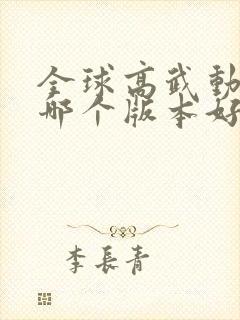 全球高武動
哪个版本好
李長青